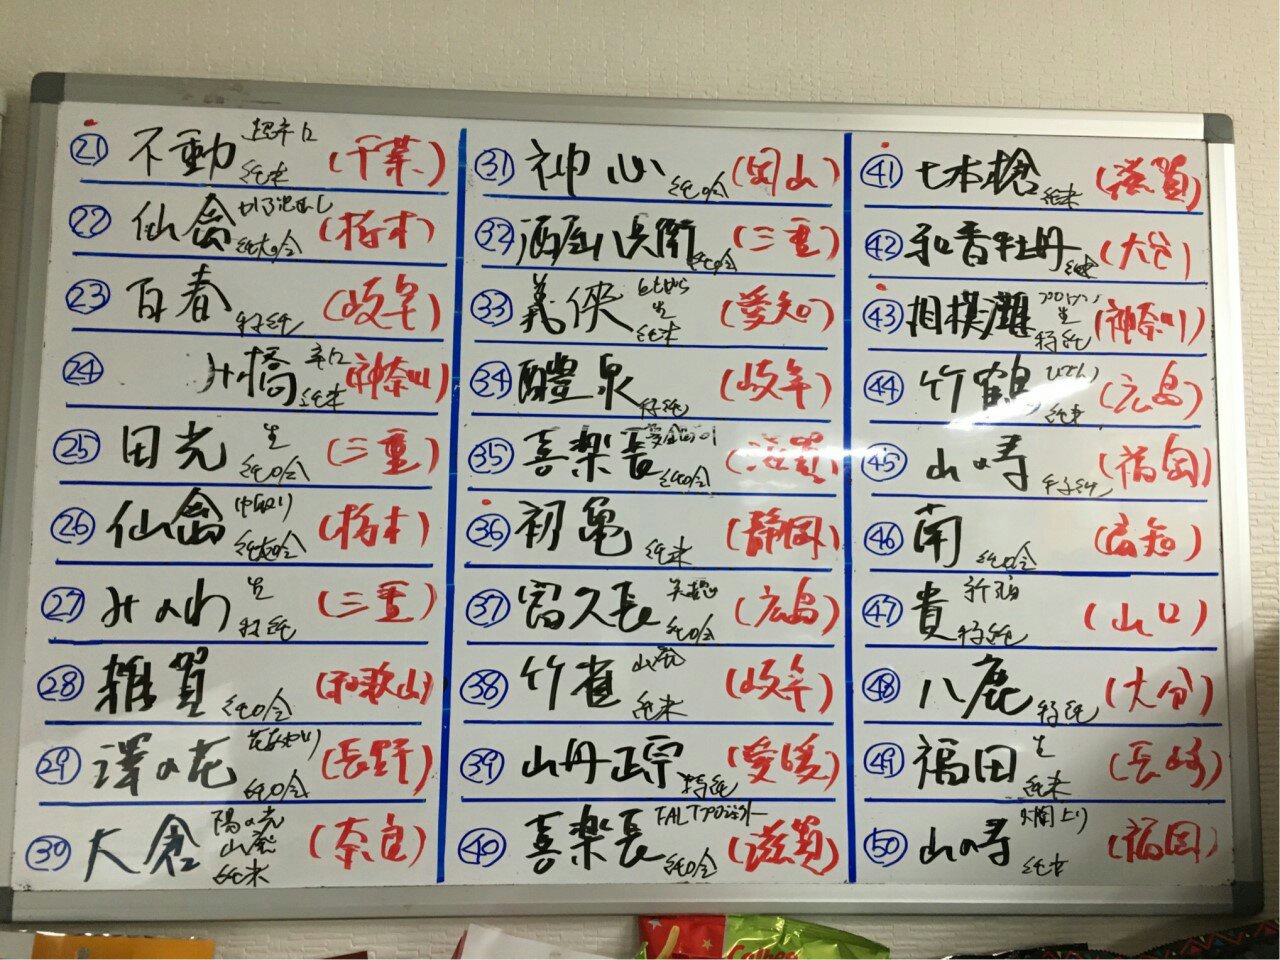 ㉑ 不動 超辛口 純米 (千葉)
㉒ 仙禽 かぶとむし 純大吟 (栃木)
㉓ 百春 特純 (岐阜)
㉔ 橋 辛口 純米 (神奈川)
㉕ 田光 生 純吟 (三重)
㉖ 仙禽 中取り 純大吟 (栃木)
㉗ みのわ 生 特純 (三重)
㉘ 雑賀 純吟 (和歌山)
㉙ 澤の花 花あかり 純吟 (長野)
㉚ 大倉 陽の光 山廃 純米 (奈良)
㉛ 神心 純吟 (岡山)
㉜ 酒屋八兵衛 純吟 (三重)
㉝ 義侠 生 純米 (愛知)
㉞ 醴泉 特純 (岐阜)
㉟ 喜楽長 純吟 (滋賀)
㊱ 初亀 純米 (静岡)
㊲ 富久長 純吟 (広島)
㊳ 竹雀 山廃 純米 (岐阜)
㊴ 山丹正宗 特純 (愛媛)
㊵ 喜楽長 純吟 (滋賀)
㊶ 七本槍 純米 (滋賀)
㊷ 和香牡丹 純吟 (大分)
㊸ 相模灘 生 特純 (神奈川)
㊹ 竹鶴 純米 (広島)
㊺ 山の寿 特純 (福岡)
㊻ 南 純吟 (高知)
㊼ 貴 特純 (山口)
㊽ 八鹿 特純 (大分)
㊾ 福田 生 純米 (長崎)
㊿ 山の寿 純米 (福岡)
Calbee